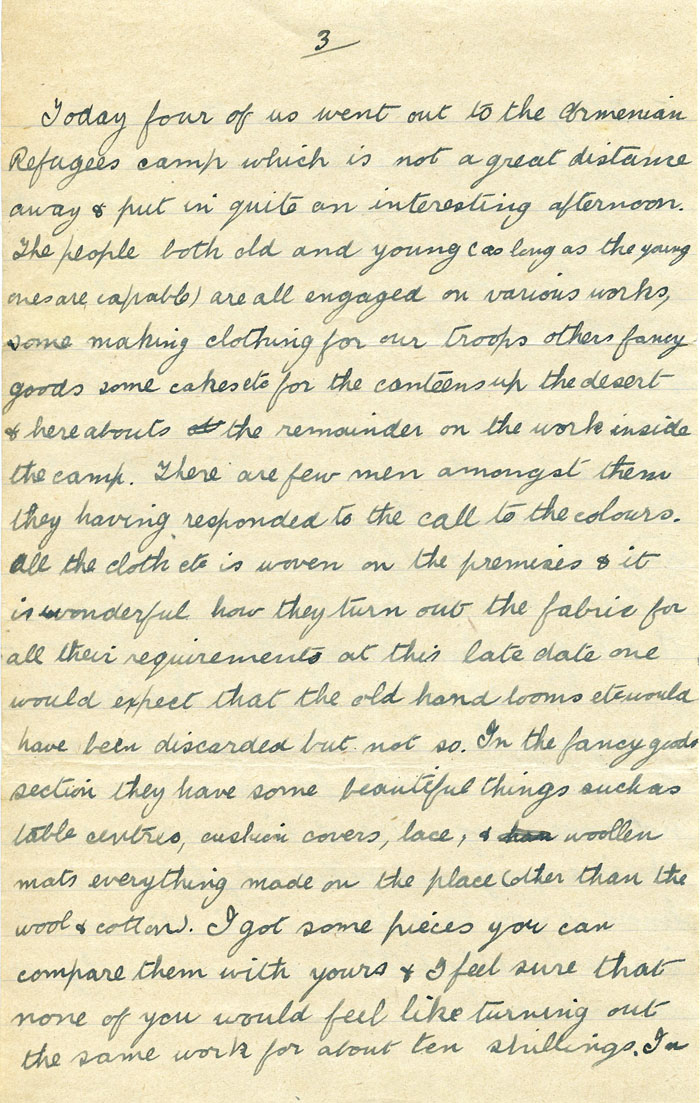 3
Today four of us went out to the Armenian
Refugees camp which is not a great distance
away & put in quite an interesting afternoon.
The people both old and young (as long as the young
ones are capable) are all engaged on various works,
some making clothing for our troops others fancy
goods some cakes etc for the canteens up the desert
& hereabouts the remainder on the work inside
the camp. There are few men amongst them
they having responded to the call to the colours.
All the cloth etc is woven on the premises & it
is wonderful how they turn out the fabric for
all their requirements at this late date one
would expect that the old hand looms etc would
have been discarded but not so. In the fancy goods
section they have some beautiful things such as
table centres, cushion covers, lace, & woollen
mats everything made on the place (other than the
wool & cotton). I got some pieces you can
compare them with yours & I feel sure that
none of you would feel like turning out
the same work for about ten shillings. In